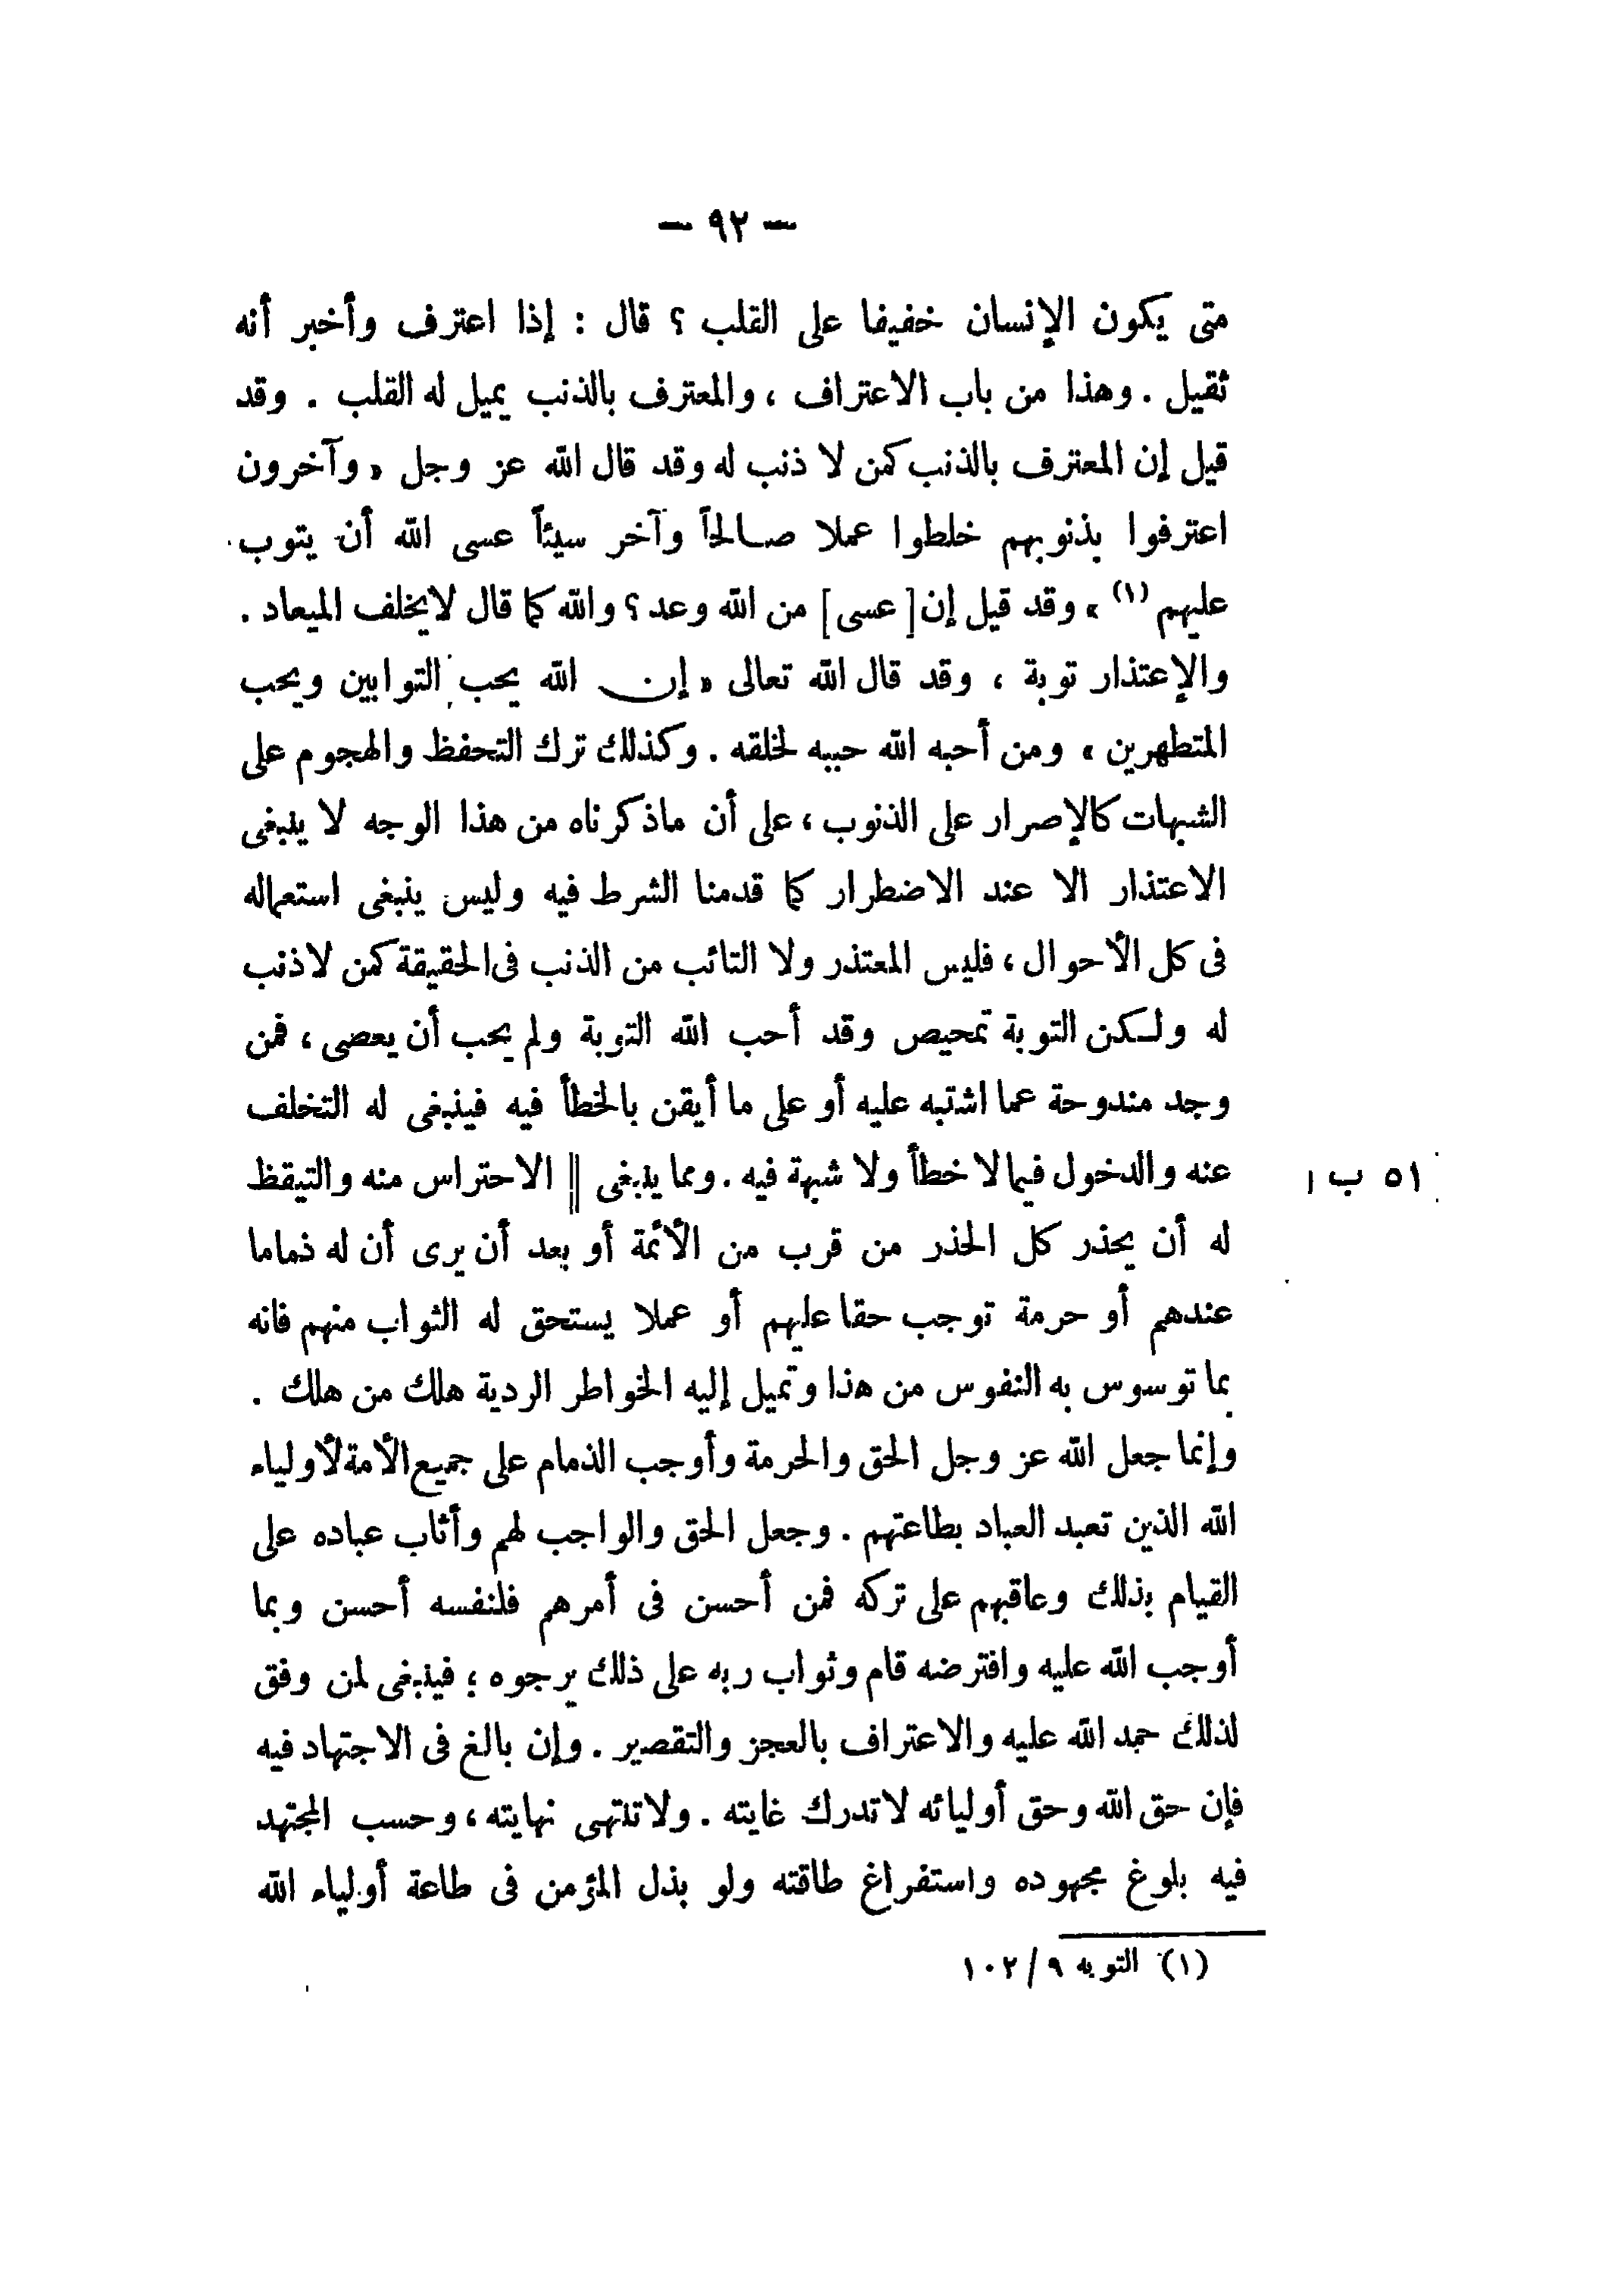 — ٩٢ —
متى يكون الإنسان خفيفا على القلب ؟ قال : إذا اعترف وأخبر أنه
ثقيل . وهذا من باب الاعتراف ، والمعترف بالذنب يميل له القلب . وقد
قيل إن المعترف بالذنب كمن لا ذنب له وقد قال الله عز وجل « وآخرون
اعترفوا بذنوبهم خلطوا عملا صالحاً وآخر سيئاً عسى الله أن يتوب
عليهم (١) » وقد قيل إن [ عسى ] من الله وعد ؟ والله كما قال لا يخلف الميعاد .
والإعتذار توبة ، وقد قال الله تعالى « إن الله يحب التوابين ويحب
المتطهرين » ومن أحبه الله حببه لخلقه . وكذلك ترك التحفظ والهجوم على
الشبهات كالإصرار على الذنوب ، على أن ماذكرناه من هذا الوجه لا ينبغى
الاعتذار الا عند الاضطرار كما قدمنا الشرط فيه وليس ينبغى استعماله
فى كل الأحوال ، فليس المعتذر ولا التائب من الذنب فى الحقيقة كمن لا ذنب
له ولكن التوبة تمحيص وقد أحب الله التوبة ولم يحب أن يعصى ، فمن
وجد مندوحة عما اشتبه عليه أو على ما أيقن بالخطأ فيه فينبغى له التخلف
عنه والدخول فيما لا خطأ ولا شبهة فيه . ومما ينبغى || الاحتراس منه والتيقظ
٥١ ب ا
له أن يحذر كل الحذر من قرب من الأئمة أو بعد أن يرى أن له ذماما
عندهم أو حرمة توجب حقا عليهم أو عملا يستحق له الثواب منهم فانه
بما توسوس به النفوس من هذا وتميل إليه الخواطر الردية هلك من هلك .
وإنما جعل الله عز وجل الحق والحرمة وأوجب الذمام على جميع الأمة لأولياء
الله الذين تعبد العباد بطاعتهم . وجعل الحق والواجب لهم وأثاب عباده على
القيام بذلك وعاقبهم على تركه فمن أحسن فى أمرهم فلنفسه أحسن وبما
أوجب الله عليه وافترضه قام وثواب ربه على ذلك يرجوه ؛ فينبغى لمن وفق
لذلك حمد الله عليه والاعتراف بالعجز والتقصير . وإن بالغ فى الاجتهاد فيه
فإن حق الله وحق أوليائه لا تدرك غايته . ولا تنتهى نهايته ، وحسب المجتهد
فيه بلوغ مجهوده واستفراغ طاقته ولو بذل المؤمن فى طاعة أولياء الله
(١) التوبه ٩ / ١٠٢